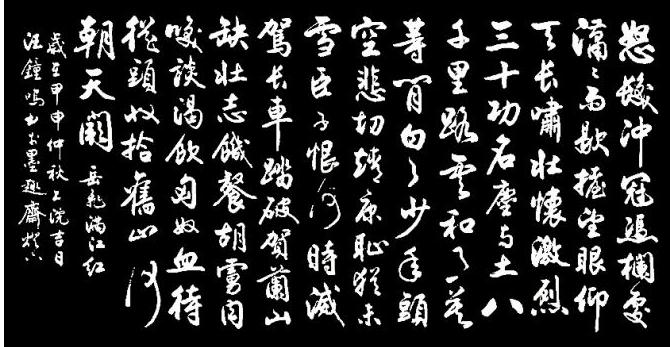 怒髮冲冠憑欄處
瀟瀟雨歇擡望眼仰
天長嘯壯懷激烈
三十功名塵与土八
千里路雲和月莫
等閒白了少年頭
空悲切靖康恥猶未
雪臣子恨何時滅
駕長車踏破賀蘭山
缺壯志饑餐胡虜肉
笑談渴飲匈奴血待
從頭收拾舊山河
朝天闕 岳飛滿江紅
歲在甲申仲秋上浣吉日
汪鐘鳴書於墨趣齋